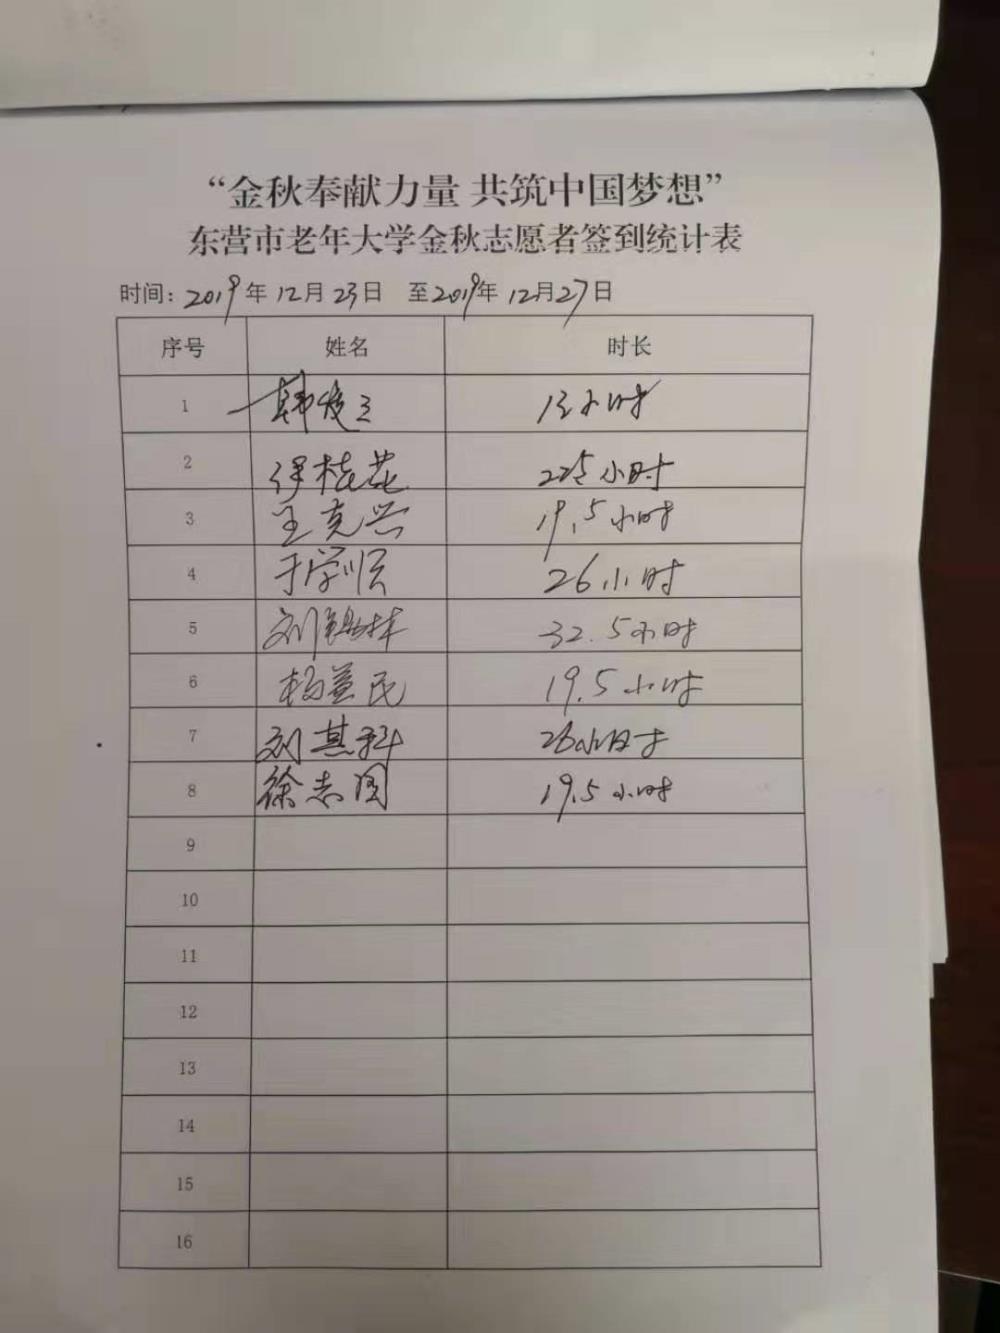 “金秋奉献力量 共筑中国梦想”
东营市老年大学金秋志愿者签到统计表
时间：2019年12月23日 至2019年12月27日
序号 姓名 时长
1 韩俊三 13小时
2 伊桂花 22.5小时
3 王克兴 19.5小时
4 于学顺 26小时
5 刘锡林 32.5小时
6 杨益民 19.5小时
7 刘其科 26小时
8 徐志国 19.5小时
9
10
11
12
13
14
15
16